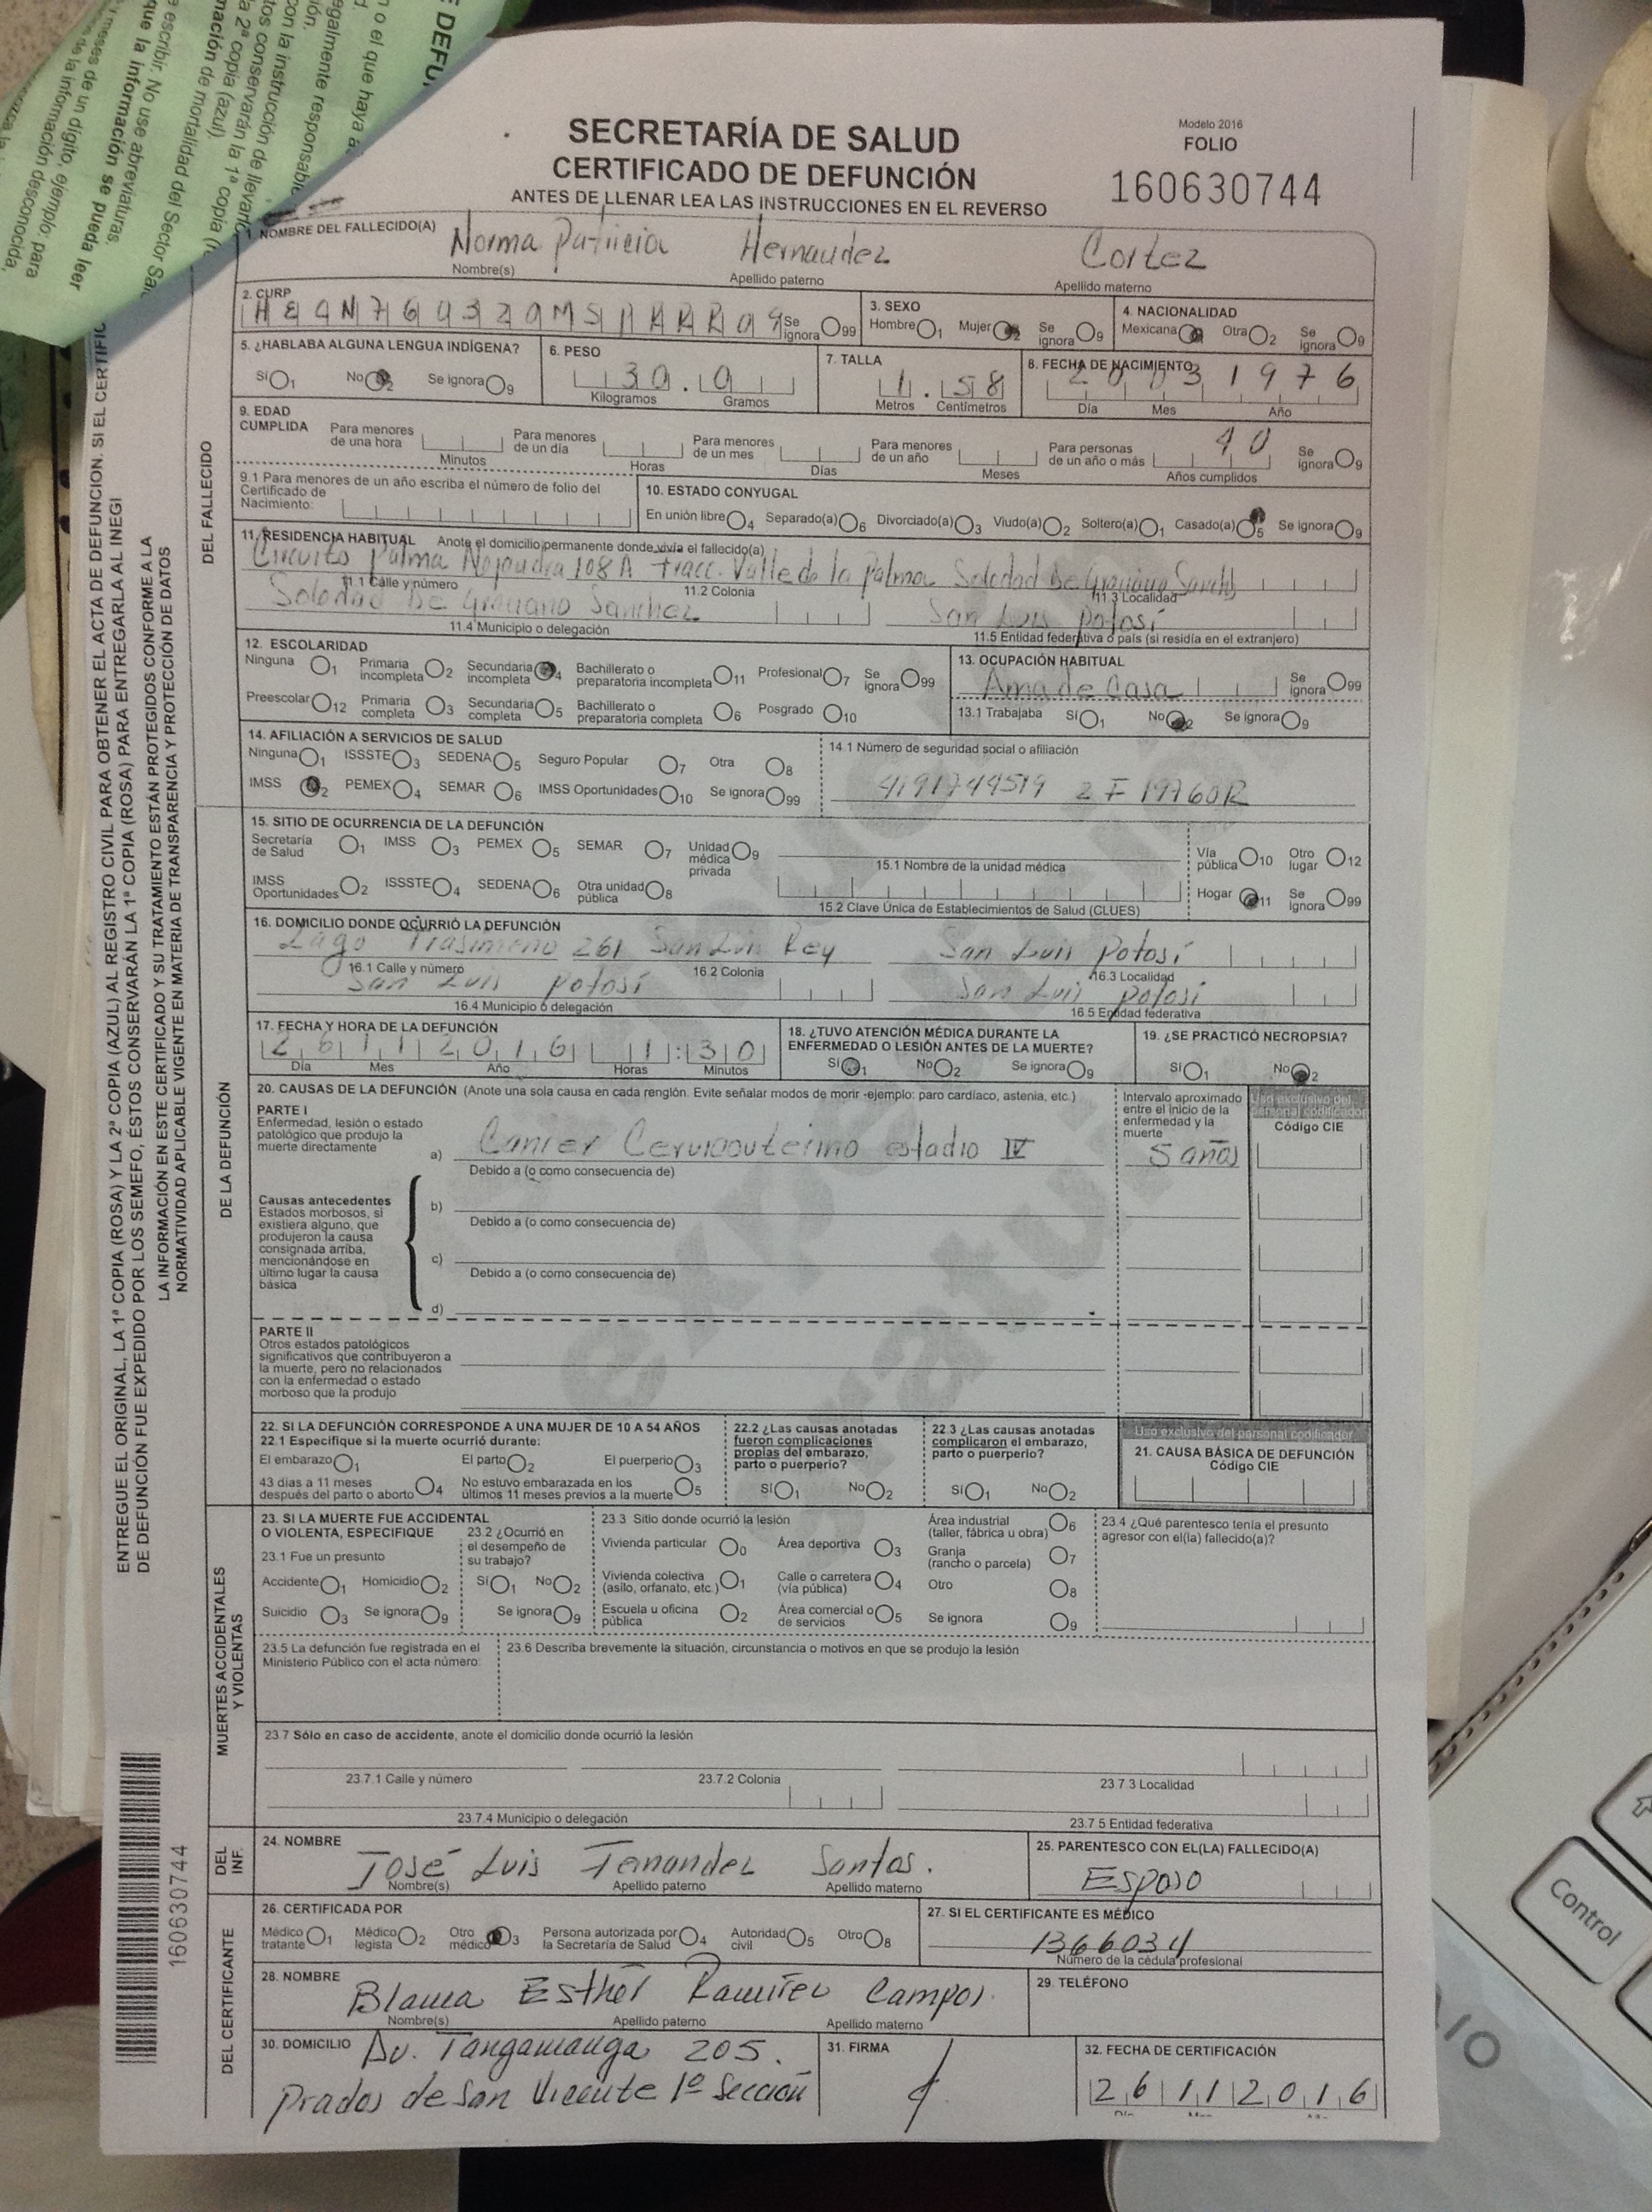 E DEFU
SECRETARÍA DE SALUD
CERTIFICADO DE DEFUNCIÓN
ANTES DE LLENAR LEA LAS INSTRUCCIONES EN EL REVERSO
Modelo 2016
FOLIO
160630744
1. NOMBRE DEL FALLECIDO(A) Norma Patricia Hernandez Cortez
Nombre(s) Apellido paterno Apellido materno
2. CURP Se ignora 99 3. SEXO Hombre 1 Mujer 2 Se ignora 9 4. NACIONALIDAD Mexicana Otra 2 Se ignora 9
5. ¿HABLABA ALGUNA LENGUA INDÍGENA? Sí 1 No 2 Se ignora 9
6. PESO 30.0 Kilogramos Gramos
7. TALLA 1.58 Metros Centímetros
8. FECHA DE NACIMIENTO 20031976 Día Mes Año
9. EDAD CUMPLIDA
Para menores de una hora Minutos Para menores de un día Horas Para menores de un mes Días Para menores de un año Meses Para personas de un año o más 40 Años cumplidos Se ignora 9
9.1 Para menores de un año escriba el número de folio del Certificado de Nacimiento:
10. ESTADO CONYUGAL
En unión libre 4 Separado(a) 6 Divorciado(a) 3 Viudo(a) 2 Soltero(a) 1 Casado(a) 5 Se ignora 9
11. RESIDENCIA HABITUAL Anote el domicilio permanente donde vivía el fallecido(a)
Circuito Palma 108 A Fracc. Valle de la Palma Soledad De Graciano Sanchez
11.1 Calle y número 11.2 Colonia 11.3 Localidad
Soledad De Graciano Sanchez San Luis Potosí
11.4 Municipio o delegación 11.5 Entidad federativa o país (si residía en el extranjero)
12. ESCOLARIDAD
Ninguna 1 Primaria incompleta 2 Secundaria incompleta 4 Bachillerato o preparatoria incompleta 11 Profesional 7 Se ignora 99
Preescolar 12 Primaria completa 3 Secundaria completa 5 Bachillerato o preparatoria completa 6 Posgrado 10
13. OCUPACIÓN HABITUAL
Ama de Casa Se ignora 99
13.1 Trabajaba Sí 1 No 2 Se ignora 9
14. AFILIACIÓN A SERVICIOS DE SALUD
Ninguna 1 ISSSTE 3 SEDENA 5 Seguro Popular 7 Otra 8
IMSS 2 PEMEX 4 SEMAR 6 IMSS Oportunidades 10 Se ignora 99
14.1 Número de seguridad social o afiliación
15. SITIO DE OCURRENCIA DE LA DEFUNCIÓN
Secretaría de Salud 1 IMSS 3 PEMEX 5 SEMAR 7 Unidad médica privada 9
15.1 Nombre de la unidad médica
Vía pública 10 Otro lugar 12
IMSS Oportunidades 2 ISSSTE 4 SEDENA 6 Otra unidad pública 8
15.2 Clave Única de Establecimientos de Salud (CLUES)
Hogar 11 Se ignora 99
16. DOMICILIO DONDE OCURRIÓ LA DEFUNCIÓN
Lago Trasimeno 261 San Luis Rey San Luis Potosí
16.1 Calle y número 16.2 Colonia 16.3 Localidad
San Luis Potosí San Luis Potosí
16.4 Municipio o delegación 16.5 Entidad federativa
17. FECHA Y HORA DE LA DEFUNCIÓN
26112016 1:30
Día Mes Año Horas Minutos
18. ¿TUVO ATENCIÓN MÉDICA DURANTE LA ENFERMEDAD O LESIÓN ANTES DE LA MUERTE?
Sí 1 No 2 Se ignora 9
19. ¿SE PRACTICÓ NECROPSIA?
Sí 1 No 2
20. CAUSAS DE LA DEFUNCIÓN (Anote una sola causa en cada renglón. Evite señalar modos de morir -ejemplo: paro cardíaco, astenia, etc.)
Intervalo aproximado entre el inicio de la enfermedad y la muerte
Uso exclusivo del personal codificador
Código CIE
PARTE I
Enfermedad, lesión o estado patológico que produjo la muerte directamente
a) Cancer Cervicouterino estadio IV 5 años
Debido a (o como consecuencia de)
Causas antecedentes
Estados morbosos, si existiera alguno, que produjeron la causa consignada arriba, mencionándose en último lugar la causa básica
b)
Debido a (o como consecuencia de)
c)
Debido a (o como consecuencia de)
d)
PARTE II
Otros estados patológicos significativos que contribuyeron a la muerte, pero no relacionados con la enfermedad o estado morboso que la produjo
22. SI LA DEFUNCIÓN CORRESPONDE A UNA MUJER DE 10 A 54 AÑOS
22.1 Especifique si la muerte ocurrió durante:
El embarazo 1 El parto 2 El puerperio 3
43 días a 11 meses después del parto o aborto 4 No estuvo embarazada en los últimos 11 meses previos a la muerte 5
22.2 ¿Las causas anotadas fueron complicaciones propias del embarazo, parto o puerperio?
Sí 1 No 2
22.3 ¿Las causas anotadas complicaron el embarazo, parto o puerperio?
Sí 1 No 2
Uso exclusivo del personal codificador
21. CAUSA BÁSICA DE DEFUNCIÓN
Código CIE
23. SI LA MUERTE FUE ACCIDENTAL O VIOLENTA, ESPECIFIQUE
23.1 Fue un presunto
Accidente 1 Homicidio 2
Suicidio 3 Se ignora 9
23.2 ¿Ocurrió en el desempeño de su trabajo?
Sí 1 No 2
Se ignora 9
23.3 Sitio donde ocurrió la lesión
Vivienda particular 0 Área deportiva 3 Área industrial (taller, fábrica u obra) 6
Vivienda colectiva (asilo, orfanato, etc.) 1 Calle o carretera (vía pública) 4 Granja (rancho o parcela) 7
Otro 8
Escuela u oficina pública 2 Área comercial o de servicios 5 Se ignora 9
23.4 ¿Qué parentesco tenía el presunto agresor con el(la) fallecido(a)?
23.5 La defunción fue registrada en el Ministerio Público con el acta número:
23.6 Describa brevemente la situación, circunstancia o motivos en que se produjo la lesión
23.7 Sólo en caso de accidente, anote el domicilio donde ocurrió la lesión
23.7.1 Calle y número 23.7.2 Colonia 23.7.3 Localidad
23.7.4 Municipio o delegación 23.7.5 Entidad federativa
24. NOMBRE José Luis Fernandez Santos.
Nombre(s) Apellido paterno Apellido materno
25. PARENTESCO CON EL(LA) FALLECIDO(A)
Esposo
26. CERTIFICADA POR
Médico tratante 1 Médico legista 2 Otro médico 3 Persona autorizada por la Secretaría de Salud 4 Autoridad civil 5 Otro 8
27. SI EL CERTIFICANTE ES MÉDICO
1366034
Número de la cédula profesional
28. NOMBRE Blanca Esthér Ramírez Campos.
Nombre(s) Apellido paterno Apellido materno
29. TELÉFONO
30. DOMICILIO Av. Tangamanga 205.
Prados de San Vicente 1º Sección
31. FIRMA
32. FECHA DE CERTIFICACIÓN
26112016
DEL FALLECIDO
DE LA DEFUNCIÓN
MUERTES ACCIDENTALES Y VIOLENTAS
DEL INF.
DEL CERTIFICANTE
ENTREGUE EL ORIGINAL, LA 1ª COPIA (ROSA) Y LA 2ª COPIA (AZUL) AL REGISTRO CIVIL PARA OBTENER EL ACTA DE DEFUNCIÓN. SI EL CERTIFIC
DE DEFUNCIÓN FUE EXPEDIDO POR LOS SEMEFO, ÉSTOS CONSERVARÁN LA 1ª COPIA (ROSA) PARA ENTREGARLA AL INEGI
LA INFORMACIÓN EN ESTE CERTIFICADO Y SU TRATAMIENTO ESTÁN PROTEGIDOS CONFORME A LA
NORMATIVIDAD APLICABLE VIGENTE EN MATERIA DE TRANSPARENCIA Y PROTECCIÓN DE DATOS
160630744
Control